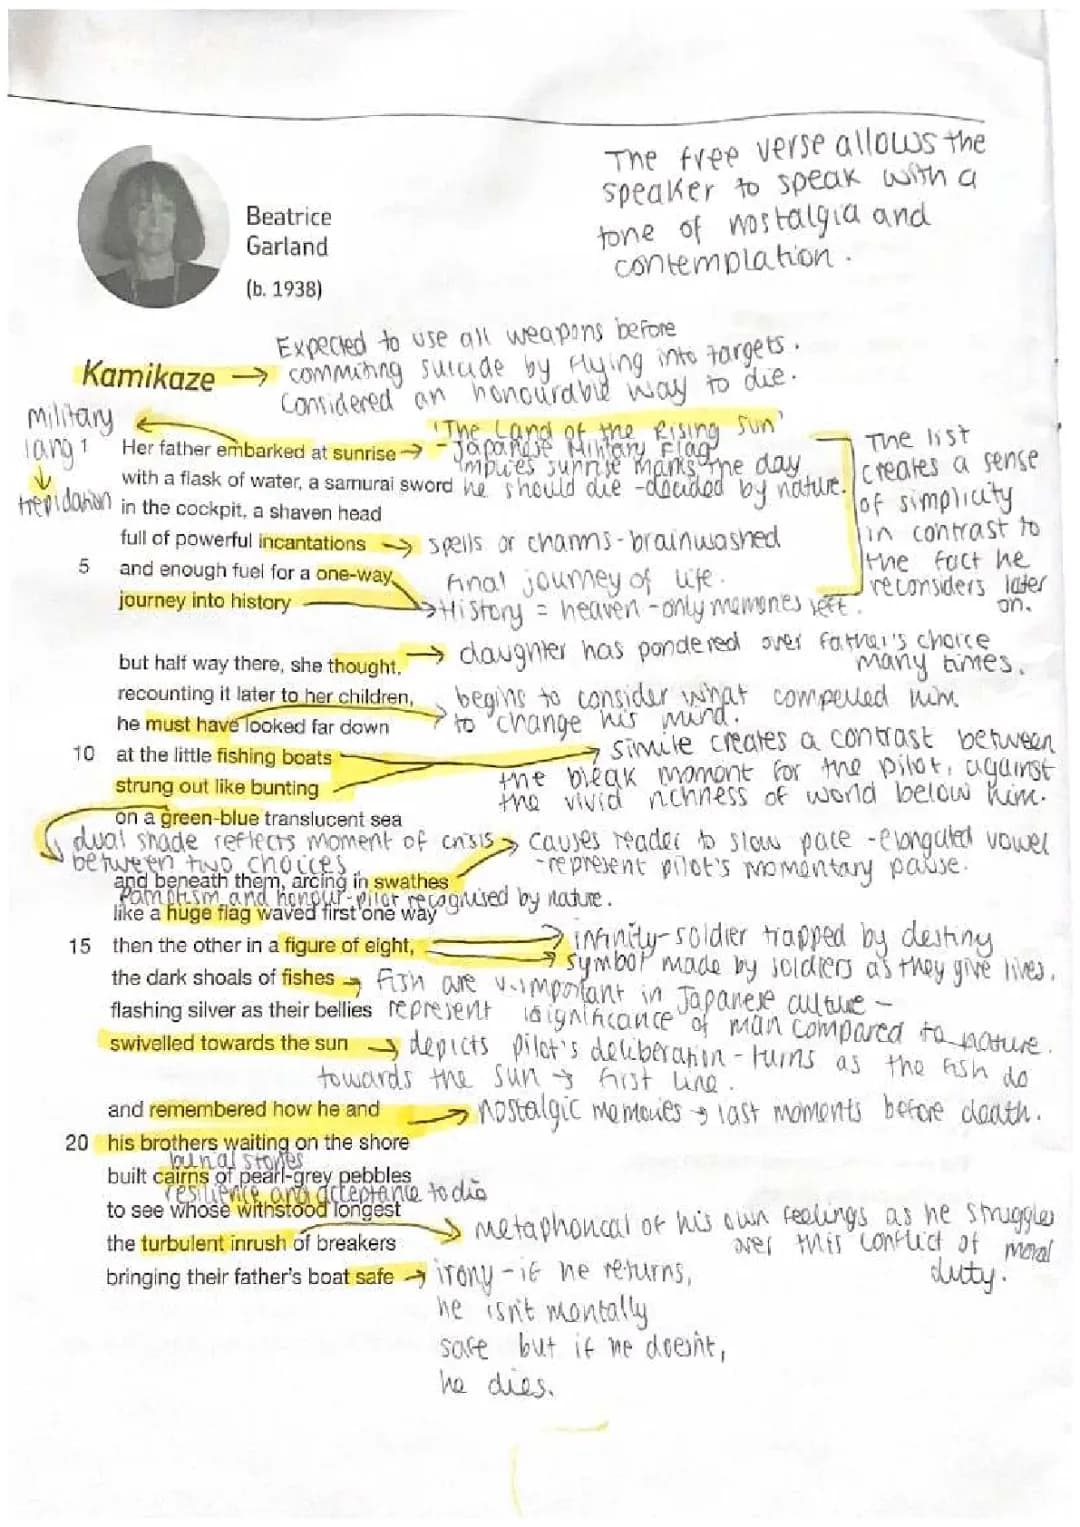 The free verse allows the
speaker to speak with a
tone of nostalgia and
contemplation.
Beatrice
Garland
(b. 1938)
Expected to use all weapons before
Kamikaze → commiting suicide by flying into targets.
Considered an honourable way to die.
Military
lang
↓
trepidation
'The Land of the Rising Sun'
1 Her father embarked at sunrise → - Japanese Military Flag
implies sunrise marks the day
with a flask of water, a samurai sword he should die - decided by nature.
in the cockpit, a shaven head
full of powerful incantations → spells or charms - brainwashed
5 and enough fuel for a one-way final journey of life.
journey into history → History = heaven - only memories left.
The list
creates a sense
of simplicity
in contrast to
the fact he
reconsiders later
on.
but half way there, she thought, → daughter has pondered over father's choice
many times.
recounting it later to her children, begins to consider what compelled him
he must have looked far down to change his mind.
10 at the little fishing boats → simile creates a contrast between
strung out like bunting the bleak moment for the pilot, against
the vivid richness of world below him.
on a green-blue translucent sea
dual shade reflects moment of crisis → causes reader to slow pace - elongated vowel
between two choices - represent pilot's momentary pause.
and beneath them, arcing in swathes
Patriotism and honour - pilot recognised by nature.
like a huge flag waved first one way
15 then the other in a figure of eight, → infinity - soldier trapped by destiny
→ symbol made by soldiers as they give lives.
the dark shoals of fishes → Fish are v.important in Japanese culture -
flashing silver as their bellies represent insignificance of man compared to nature.
swivelled towards the sun → depicts pilot's deliberation - turns as the fish do
towards the sun → first line.
and remembered how he and → nostalgic memories → last moments before death.
20 his brothers waiting on the shore
burial stones
built cairns of pearl-grey pebbles
resilience and acceptance to die
to see whose withstood longest
the turbulent inrush of breakers → metaphorical of his own feelings as he struggles
over this conflict of moral
duty.
bringing their father's boat safe → irony - if he returns,
he isn't mentally
safe but if he doesn't,
he dies.